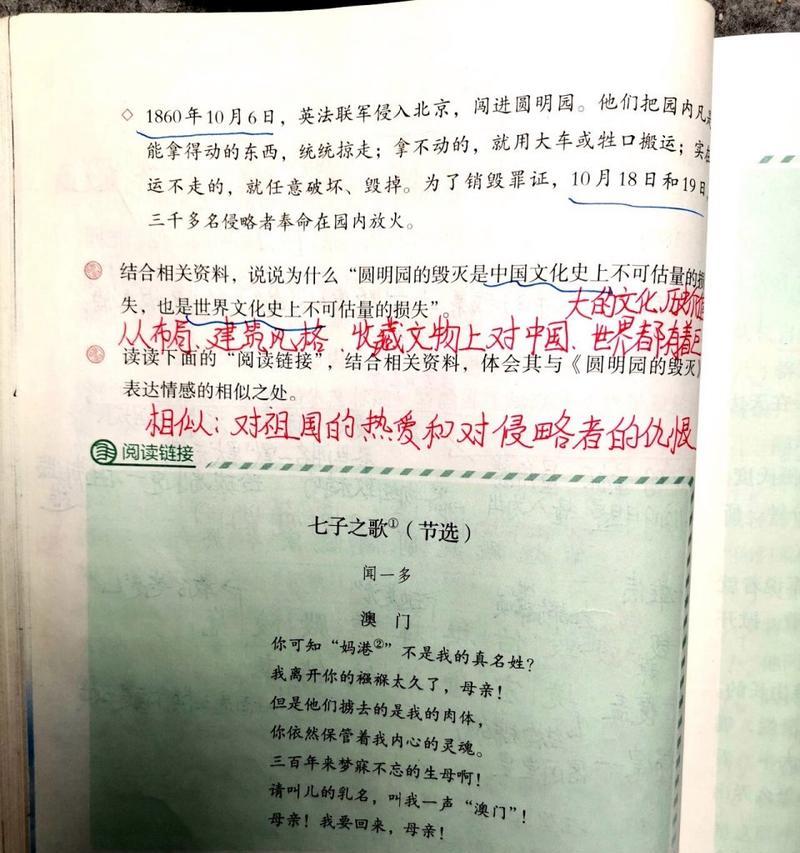 ◇ 1860年10月6日，英法联军侵入北京，闯进圆明园。他们把园内凡
能拿得动的东西，统统掠走；拿不动的，就用大车或牲口搬运；实在
运不走的，就任意破坏、毁掉。为了销毁罪证，10月18日和19日，
三千多名侵略者奉命在园内放火。
结合相关资料，说说为什么“圆明园的毁灭是中国文化史上不可估量的损
失，也是世界文化史上不可估量的损失”。
大的文化、历价值
从布局、建筑风格、收藏文物上对中国、世界都有着巨
读读下面的“阅读链接”，结合相关资料，体会其与《圆明园的毁灭》
表达情感的相似之处。
相似：对祖国的热爱和对侵略者的仇恨
阅读链接
七子之歌①（节选）
闻一多
澳 门
你可知“妈港②”不是我的真名姓？
我离开你的襁褓太久了，母亲！
但是他们掳去的是我的肉体，
你依然保管着我内心的灵魂。
三百年来梦寐不忘的生母啊！
请叫儿的乳名，叫我一声“澳门”！
母亲！我要回来，母亲！